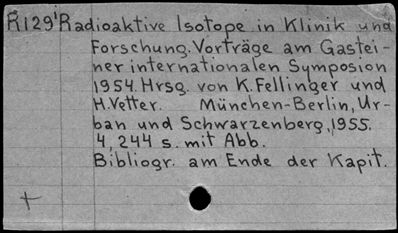 R129' Radioaktive Isotope in Klinik und
Forschung. Vorträge am Gastei-
ner internationalen Symposion
1954. Hrsg. von K. Fellinger und
H. Vetter. München-Berlin, Ur-
ban und Schwarzenberg, 1955.
4, 244 s. mit Abb.
Bibliogr. am Ende der Kapit.
+